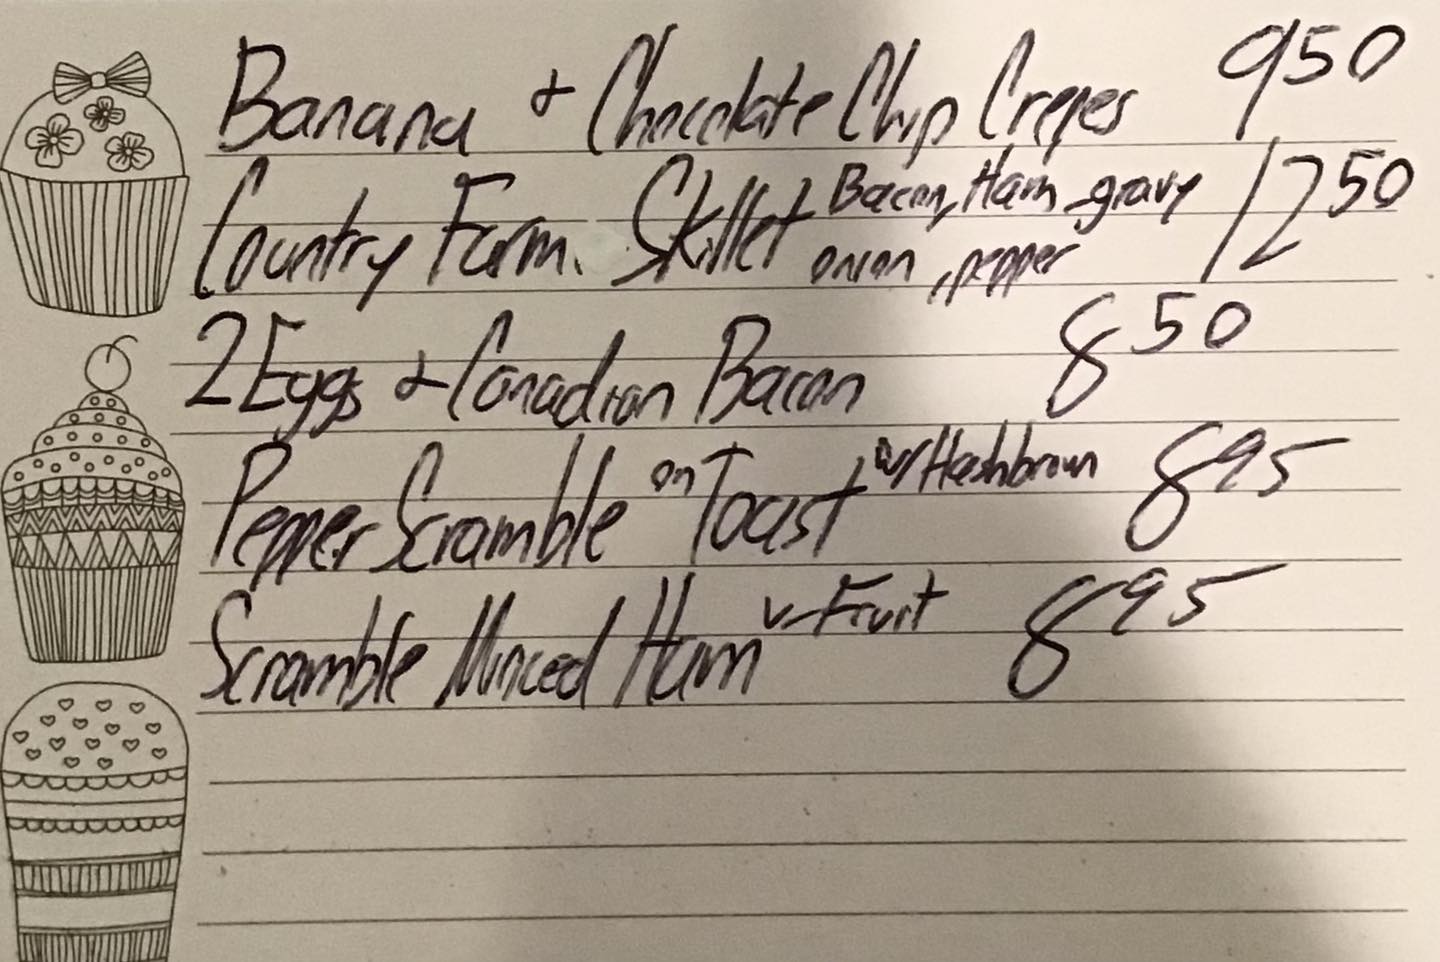 Banana & Chocolate Chip Crepes 9 50
Country Farm. Skillet Bacon, Ham, gravy 12 50
onion, pepper
2 Eggs & Canadian Bacon 8 50
Pepper Scramble on Toast w/ Hashbrown 8 95
Scramble Minced Ham w Fruit 8 95